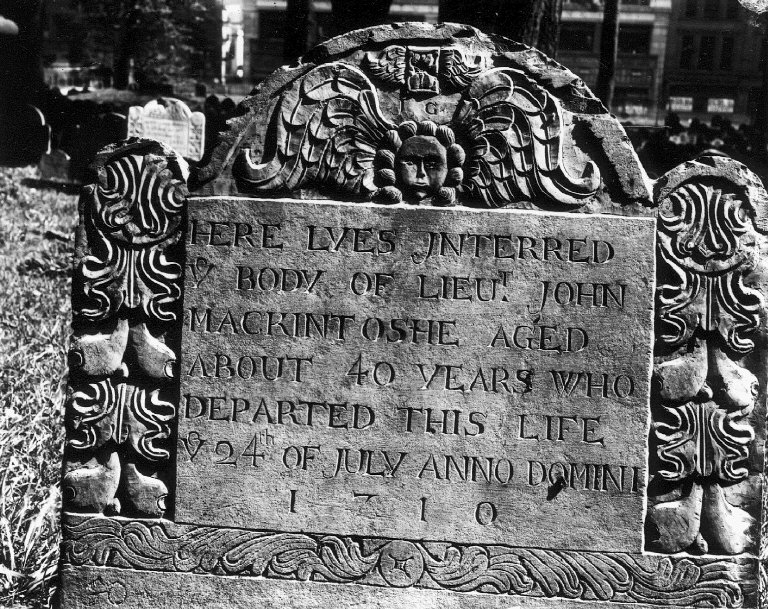 IG
HERE LYES JNTERRED
Yᵉ BODY OF LIEUᵀ JOHN
MACKINTOSHE AGED
ABOUT 40 YEARS WHO
DEPARTED THIS LIFE
Yᵉ 24ᵗʰ OF JULY ANNO DOMINI
1710